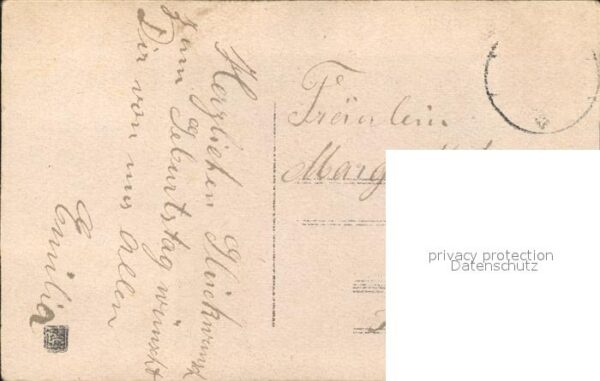 Herzlichen Glückwunsch
zum Geburtstag wünscht
Dir von uns Allen
Emilia
Fräulein
Marg
privacy protection
Datenschutz